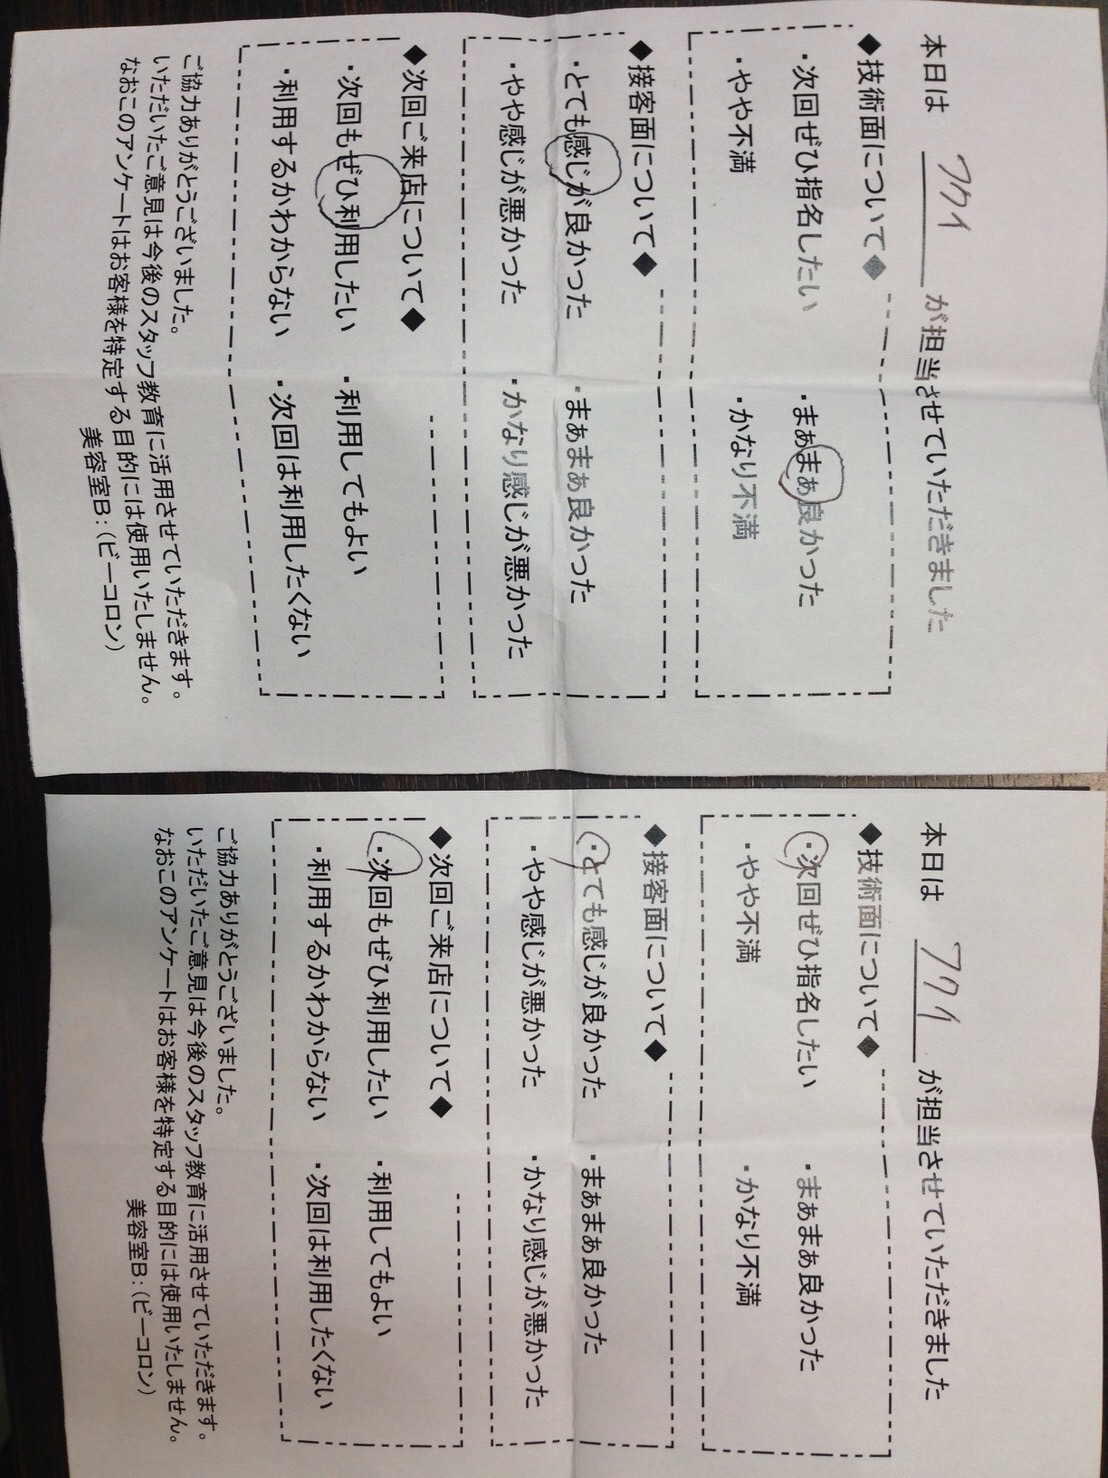 本日は フクイ が担当させていただきました
◆技術面について◆
・次回ぜひ指名したい ・まぁまぁ良かった
・やや不満 ・かなり不満
◆接客面について◆
・とても感じが良かった ・まぁまぁ良かった
・やや感じが悪かった ・かなり感じが悪かった
◆次回ご来店について◆
・次回もぜひ利用したい ・利用してもよい
・利用するかわからない ・次回は利用したくない
ご協力ありがとうございました。
いただいたご意見は今後のスタッフ教育に活用させていただきます。
なおこのアンケートはお客様を特定する目的には使用いたしません。
美容室B:(ビーコロン)
本日は フクイ が担当させていただきました
◆技術面について◆
・次回ぜひ指名したい ・まぁまぁ良かった
・やや不満 ・かなり不満
◆接客面について◆
・とても感じが良かった ・まぁまぁ良かった
・やや感じが悪かった ・かなり感じが悪かった
◆次回ご来店について◆
・次回もぜひ利用したい ・利用してもよい
・利用するかわからない ・次回は利用したくない
ご協力ありがとうございました。
いただいたご意見は今後のスタッフ教育に活用させていただきます。
なおこのアンケートはお客様を特定する目的には使用いたしません。
美容室B:(ビーコロン)